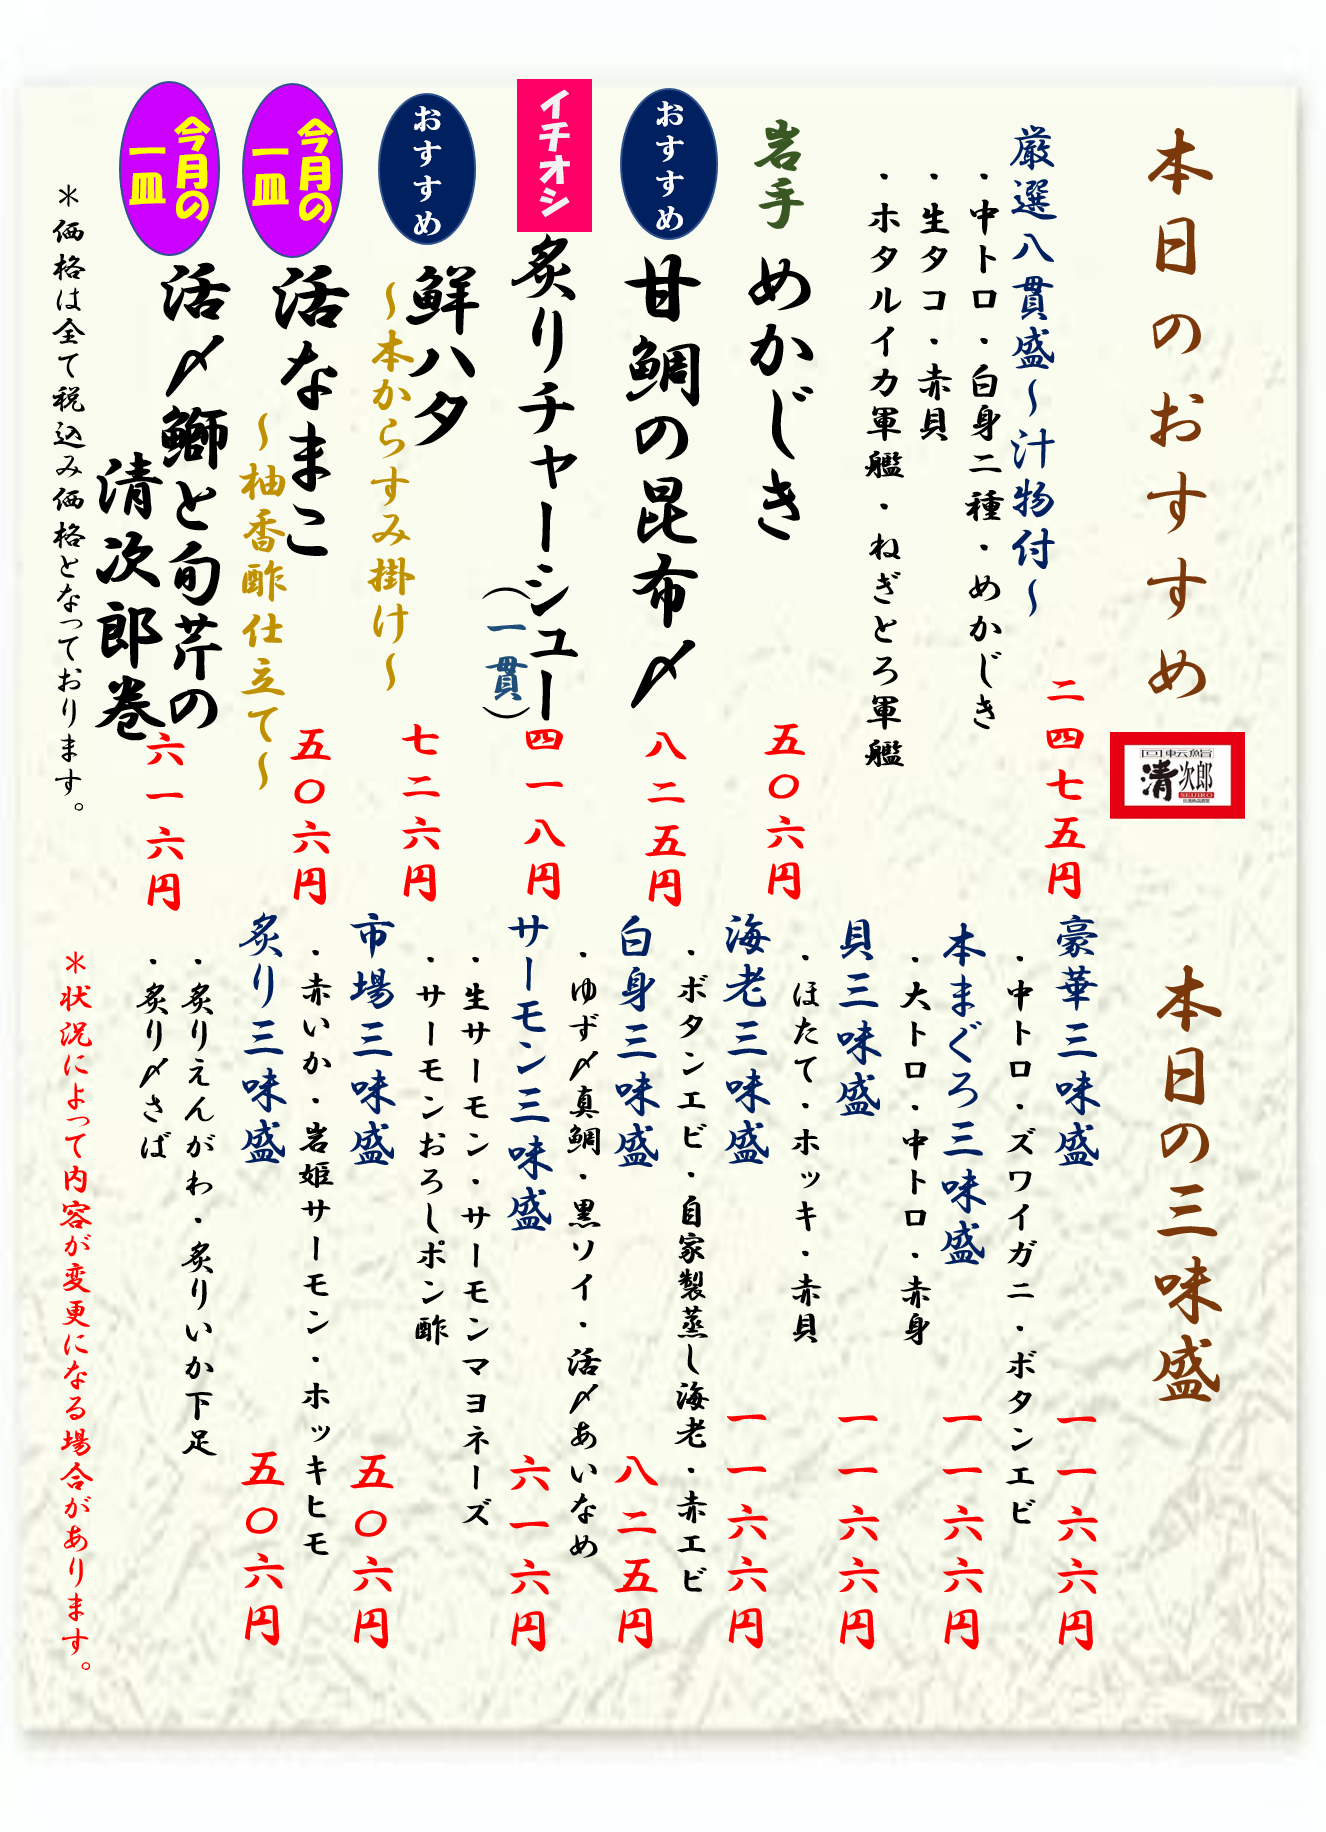 本日のおすすめ
回転鮨
清次郎
SEIJIRO
厳選八貫盛～汁物付～
・中トロ・白身二種・めかじき
・生タコ・赤貝
・ホタルイカ軍艦・ねぎとろ軍艦
二四七五円
岩手
めかじき
五〇六円
おすすめ
甘鯛の昆布〆
八二五円
イチオシ
炙りチャーシュー
（一貫）
四一八円
おすすめ
鮮ハタ
～本からすみ掛け～
七二六円
今月の
一皿
活なまこ
～柚香酢仕立て～
五〇六円
今月の
一皿
活〆鰤と旬芹の
清次郎巻
六一六円
＊価格は全て税込み価格となっております。
本日の三味盛
豪華三味盛
・中トロ・ズワイガニ・ボタンエビ
一一六六円
本まぐろ三味盛
・大トロ・中トロ・赤身
一一六六円
貝三味盛
・ほたて・ホッキ・赤貝
一一六六円
海老三味盛
・ボタンエビ・自家製蒸し海老・赤エビ
一一六六円
白身三味盛
・ゆず〆真鯛・黒ソイ・活〆あいなめ
八二五円
サーモン三味盛
・生サーモン・サーモンマヨネーズ
・サーモンおろしポン酢
六一六円
市場三味盛
・赤いか・岩姫サーモン・ホッキヒモ
五〇六円
炙り三味盛
・炙りえんがわ・炙りいか下足
・炙り〆さば
五〇六円
＊状況によって内容が変更になる場合があります。